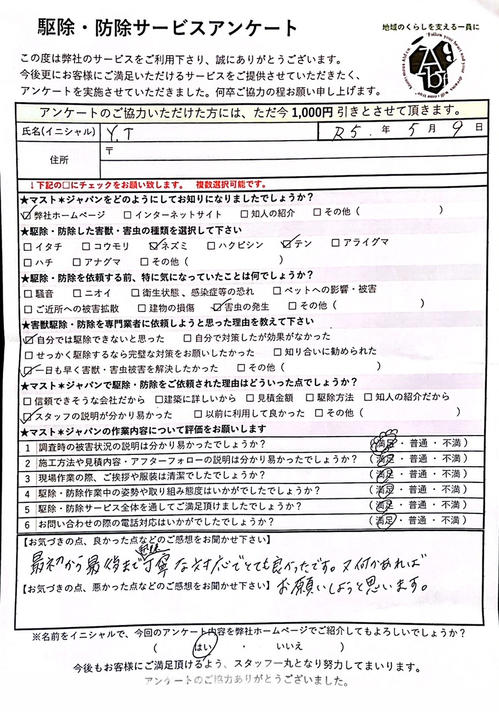 駆除・防除サービスアンケート
地域のくらしを支える一員に
この度は弊社のサービスをご利用下さり、誠にありがとうございます。
今後更にお客様にご満足いただけるサービスをご提供させていただきたく、
アンケートを実施させていただきました。何卒ご協力の程お願い申し上げます。
アンケートのご協力いただけた方には、ただ今1,000円引きとさせて頂きます。
氏名(イニシャル) Y.T R5. 年 5 月 9 日
住所 〒
↓下記の□にチェックをお願い致します。 複数選択可能です。
★マスト*ジャパンをどのようにしてお知りになりましたでしょうか?
☑弊社ホームページ □インターネットサイト □知人の紹介 □その他( )
★駆除・防除した害獣・害虫の種類を選択して下さい
□イタチ □コウモリ ☑ネズミ □ハクビシン ☑テン □アライグマ
□ハチ □アナグマ □その他( )
★駆除・防除を依頼する前、特に気になっていたことは何でしょうか?
□騒音 □ニオイ □衛生状態、感染症等の恐れ □ペットへの影響・被害
□ご近所への被害拡散 □建物の損傷 ☑害虫の発生 □その他( )
★害獣駆除・防除を専門業者に依頼しようと思った理由を教えて下さい
☑自分では駆除できないと思った □自分で対策したが効果がなかった
□せっかく駆除するなら完璧な対策をお願いしたかった □知り合いに勧められた
☑一日も早く害獣・害虫被害を解決したかった □その他( )
★マスト*ジャパンで駆除・防除をご依頼された理由はどういった点でしょうか?
□信頼できそうな会社だから □建築に詳しいから □見積金額 □駆除方法 □知人の紹介だから
☑スタッフの説明が分かりやすかった □以前に利用して良かった □その他( )
★マスト*ジャパンの作業内容について評価をお願いします
1 調査時の被害状況の説明は分かり易かったでしょうか? (満足・普通・不満)
2 施工方法や見積内容・アフターフォローの説明は分かり易かったでしょうか? (満足・普通・不満)
3 現場作業の際、ご挨拶や服装は清潔でしたでしょうか? (満足・普通・不満)
4 駆除・防除作業中の姿勢や取り組み態度はいかがでしたでしょうか? (満足・普通・不満)
5 駆除・防除サービス全体を通してご満足頂けましたでしょうか? (満足・普通・不満)
6 お問い合わせの際の電話対応はいかがでしたでしょうか? (満足・普通・不満)
【お気づきの点、良かった点などのご感想をお聞かせ下さい】
最初から最後まで丁寧な対応でとても良かったです。又何かあれば
【お気づきの点、悪かった点などのご感想をお聞かせ下さい】 お願いしようと思います。
※名前をイニシャルで、今回のアンケート内容を弊社ホームページでご紹介してもよろしいでしょうか?
( はい ・ いいえ )
今後もお客様にご満足頂けるよう、スタッフ一丸となり努力してまいります。
アンケートのご協力ありがとうございました。